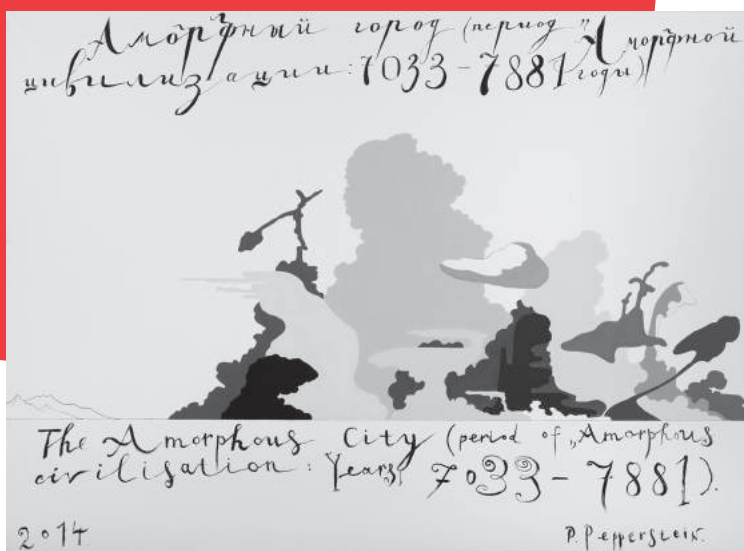 Аморфный город (период "Аморфной
цивилизации: 7033-7881 годы)
The Amorphous City (period of „Amorphous
civilisation: Years 7033-7881).
2014 P. Pepperstein.